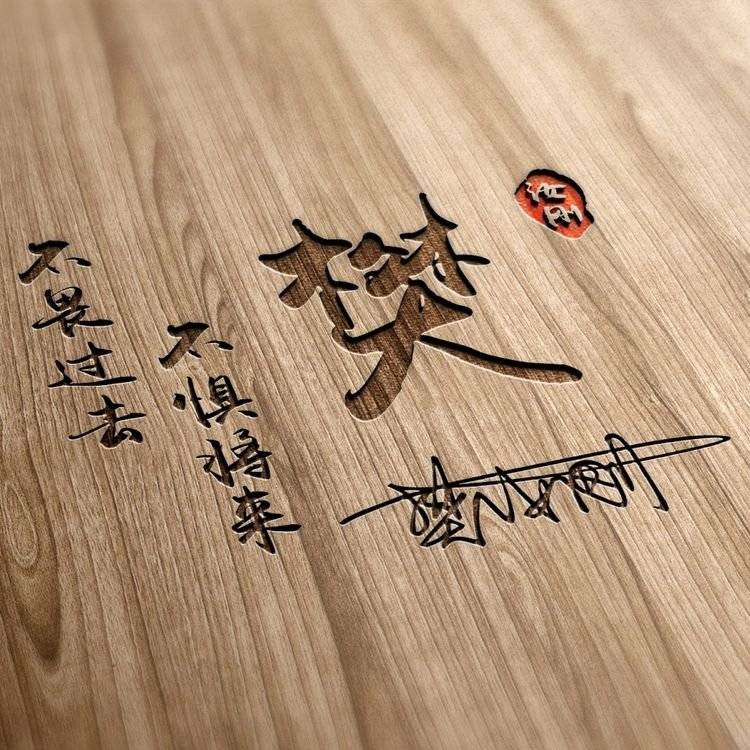 不畏过去
不惧将来
樊